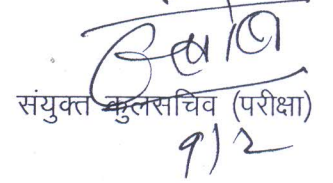 संयुक्त कुलसचिव (परीक्षा)
१/२